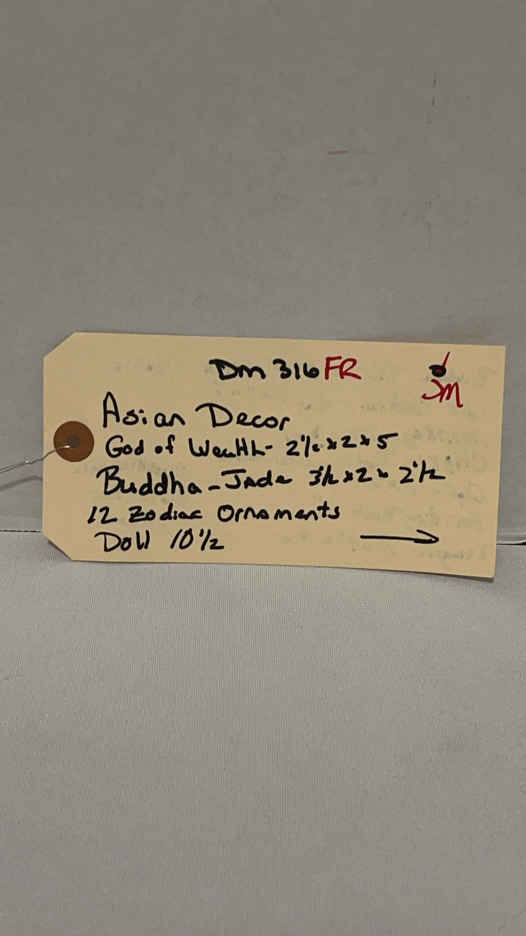 Dm 316 FR
JM
Asian Decor
God of Wealth - 2 1/2 x 2 x 5
Buddha - Jade 3 1/2 x 2 x 2 1/2
12 Zodiac Ornaments
Doll 10 1/2